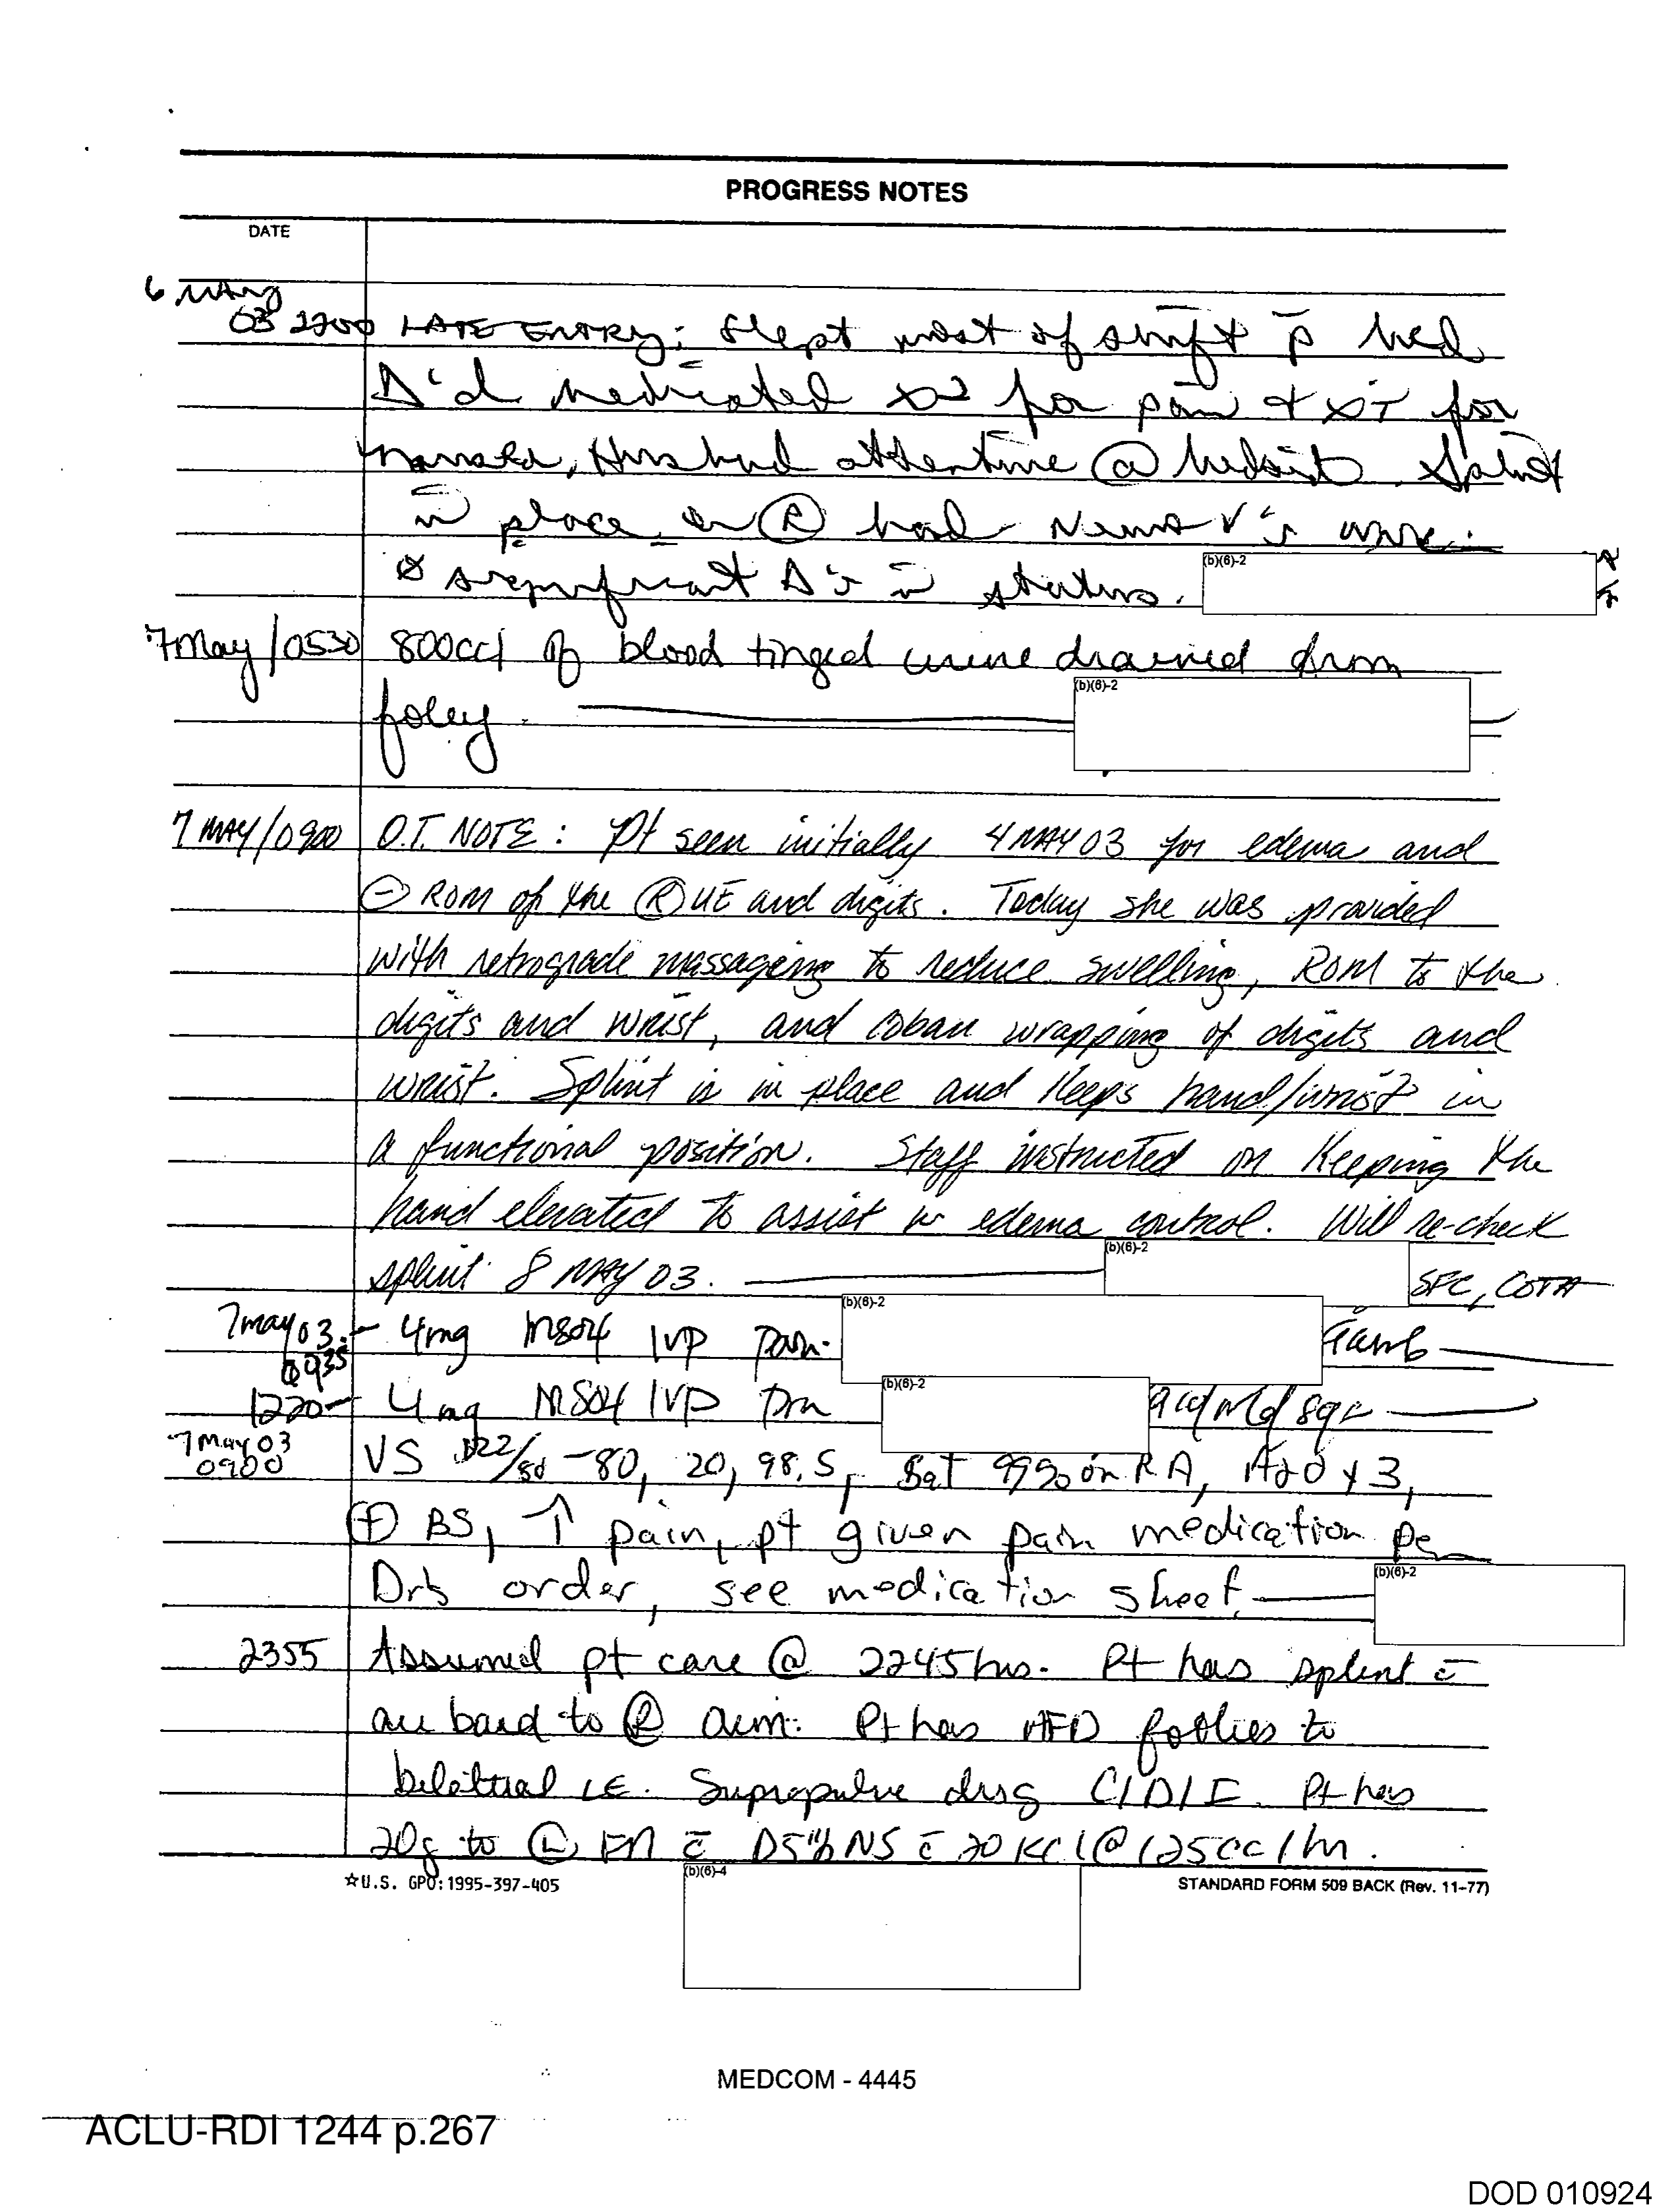 PROGRESS NOTES
DATE
6 MAY
03 2200 LATE ENTRY: Slept most of shift p̄ bed
Δ'd medicated x2 for pain + xT for
nausea, Husband attentive @ bedside. Splint
in place on Ⓡ hand Neuro √'s
Ø significant Δ's in status. (b)(6)-2
7May/0530 800cc of blood tinged urine drained from
foley. (b)(6)-2
7 MAY/0900 O.T. NOTE: Pt seen initially 4 MAY 03 for edema and
⊖ ROM of the Ⓡ UE and digits. Today she was provided
with retrograde massaging to reduce swelling, ROM to the
digits and wrist, and coban wrapping of digits and
wrist. Splint is in place and keeps hand/wrist in
a functional position. Staff instructed on keeping the
hand elevated to assist w edema control. Will re-check
splint 8 MAY 03. (b)(6)-2 SFC, COTA
7may03 0935 4mg MSO4 IVP Pain. (b)(6)-2
1220 4mg MSO4 IVP (b)(6)-2
7 May 03
0900 VS 122/80 - 80, 20, 98.5, Sat 99% on RA, A+O x 3,
⊕ BS, ↑ pain, pt given pain medication per
Dr's order, see medication sheet (b)(6)-2
2355 Assumed pt care @ 2245 hrs. Pt has splint c̄
ace band to Ⓡ arm. Pt has to
bilateral LE. Suprapubic drsg C/D/I. Pt has
20g to Ⓛ c̄ D5½NS c̄ 20 KCl @ 125cc/hr.
(b)(6)-4
☆U.S. GPO: 1995-397-405 STANDARD FORM 509 BACK (Rev. 11-77)
MEDCOM - 4445
ACLU-RDI 1244 p.267
DOD 010924